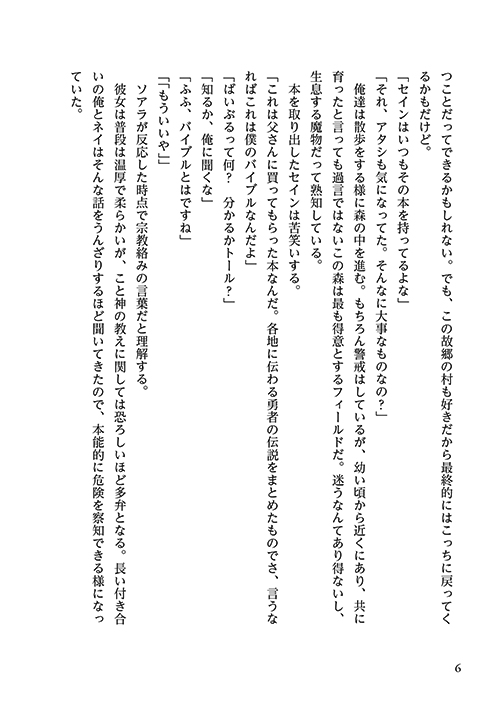 つことだってできるかもしれない。でも、この故郷の村も好きだから最終的にはこっちに戻ってく
るかもだけど。
「セインはいつもその本を持ってるよな」
「それ、アタシも気になってた。そんなに大事なものなの？」
俺達は散歩をする様に森の中を進む。もちろん警戒はしているが、幼い頃から近くにあり、共に
育ったと言っても過言ではないこの森は最も得意とするフィールドだ。迷うなんてあり得ないし、
生息する魔物だって熟知している。
本を取り出したセインは苦笑いする。
「これは父さんに買ってもらった本なんだ。各地に伝わる勇者の伝説をまとめたものでさ、言うな
ればこれは僕のバイブルなんだよ」
「ばいぶるって何？　分かるかトール？」
「知るか、俺に聞くな」
「ふふ、バイブルとはですね」
「「もういいや」」
ソアラが反応した時点で宗教絡みの言葉だと理解する。
彼女は普段は温厚で柔らかいが、こと神の教えに関しては恐ろしいほど多弁となる。長い付き合
いの俺とネイはそんな話をうんざりするほど聞いてきたので、本能的に危険を察知できる様になっ
ていた。
6